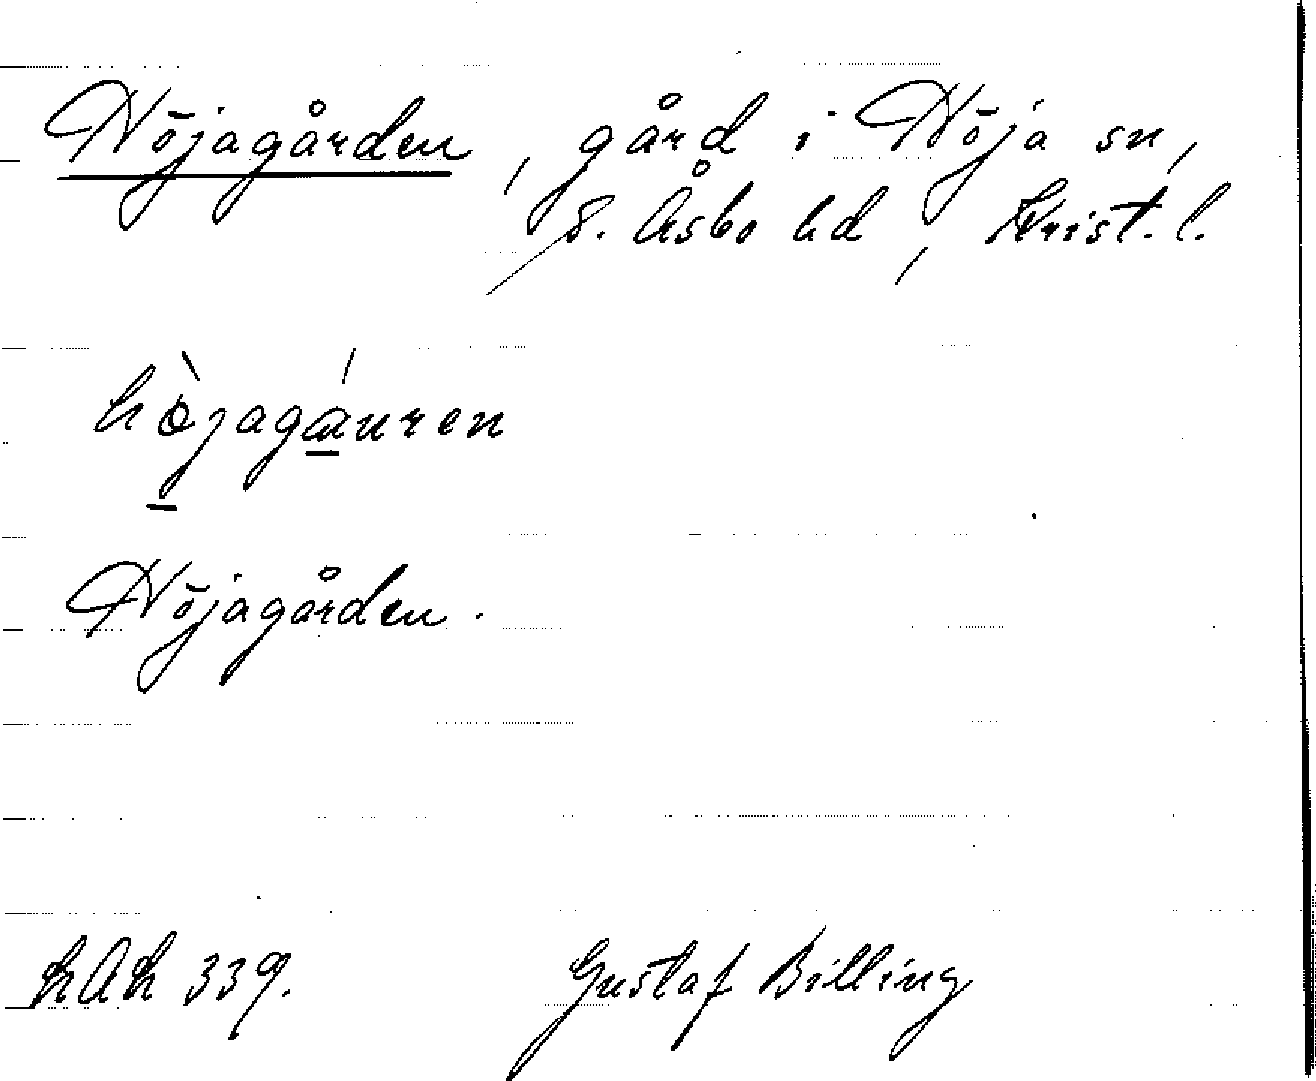 Höjagården, gård i Höja sn,
S. Åsbo hd, Krist. l.
höjagauren
Höjagården.
LAL 339.
Gustaf Billing